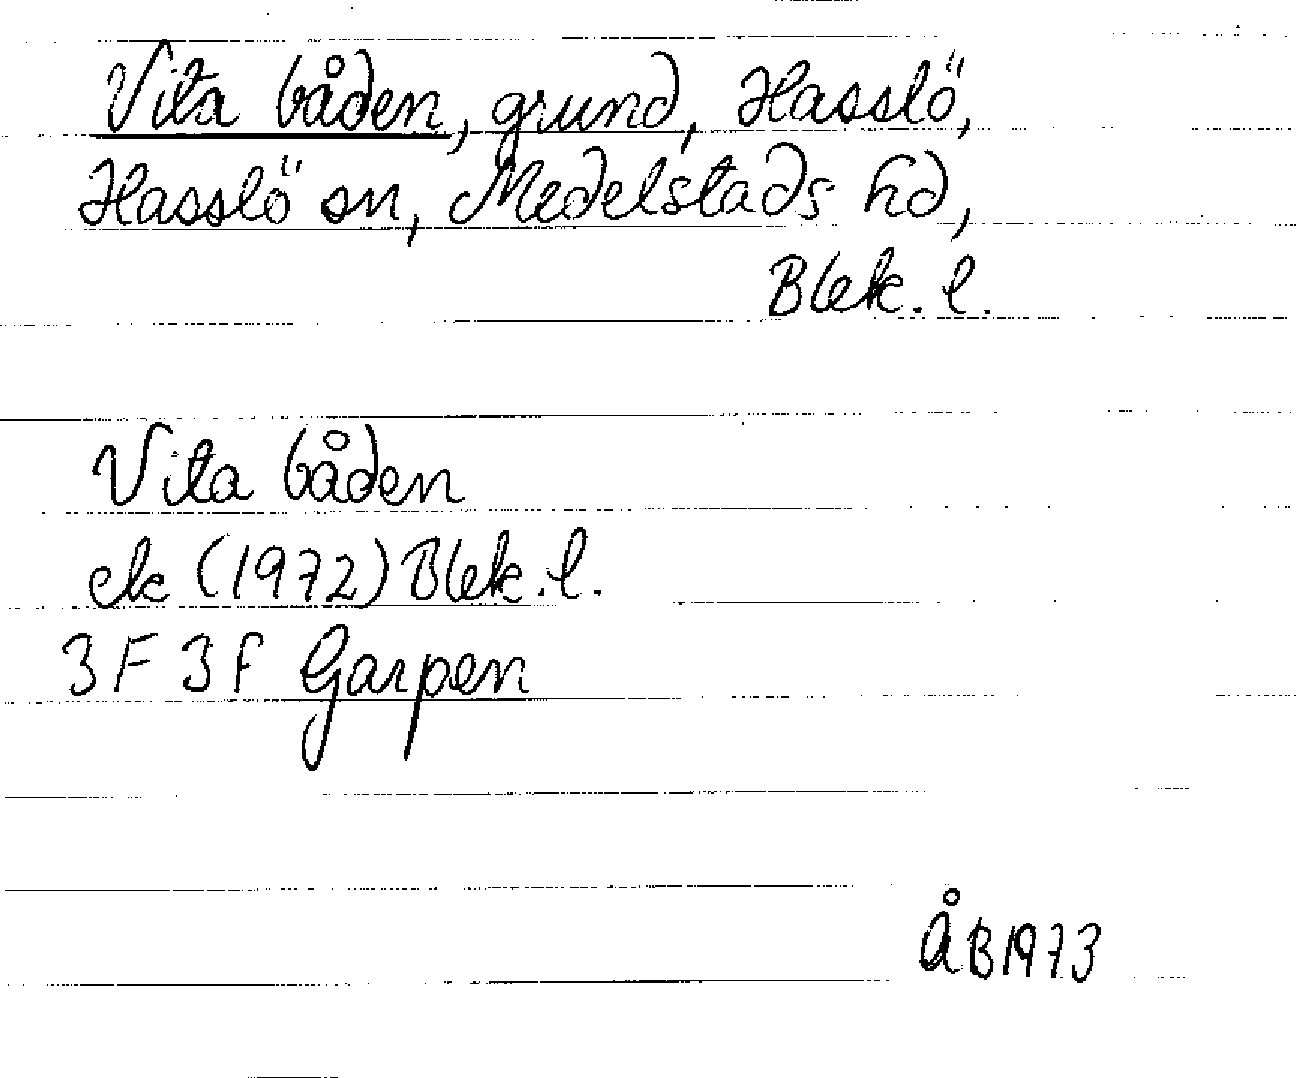 Vita båden, grund, Hasslö,
Hasslö sn, Medelstads hd,
Blek. l.
Vita båden
ek (1972) Blek. l.
3F 3f Garpen
ÅB 1973